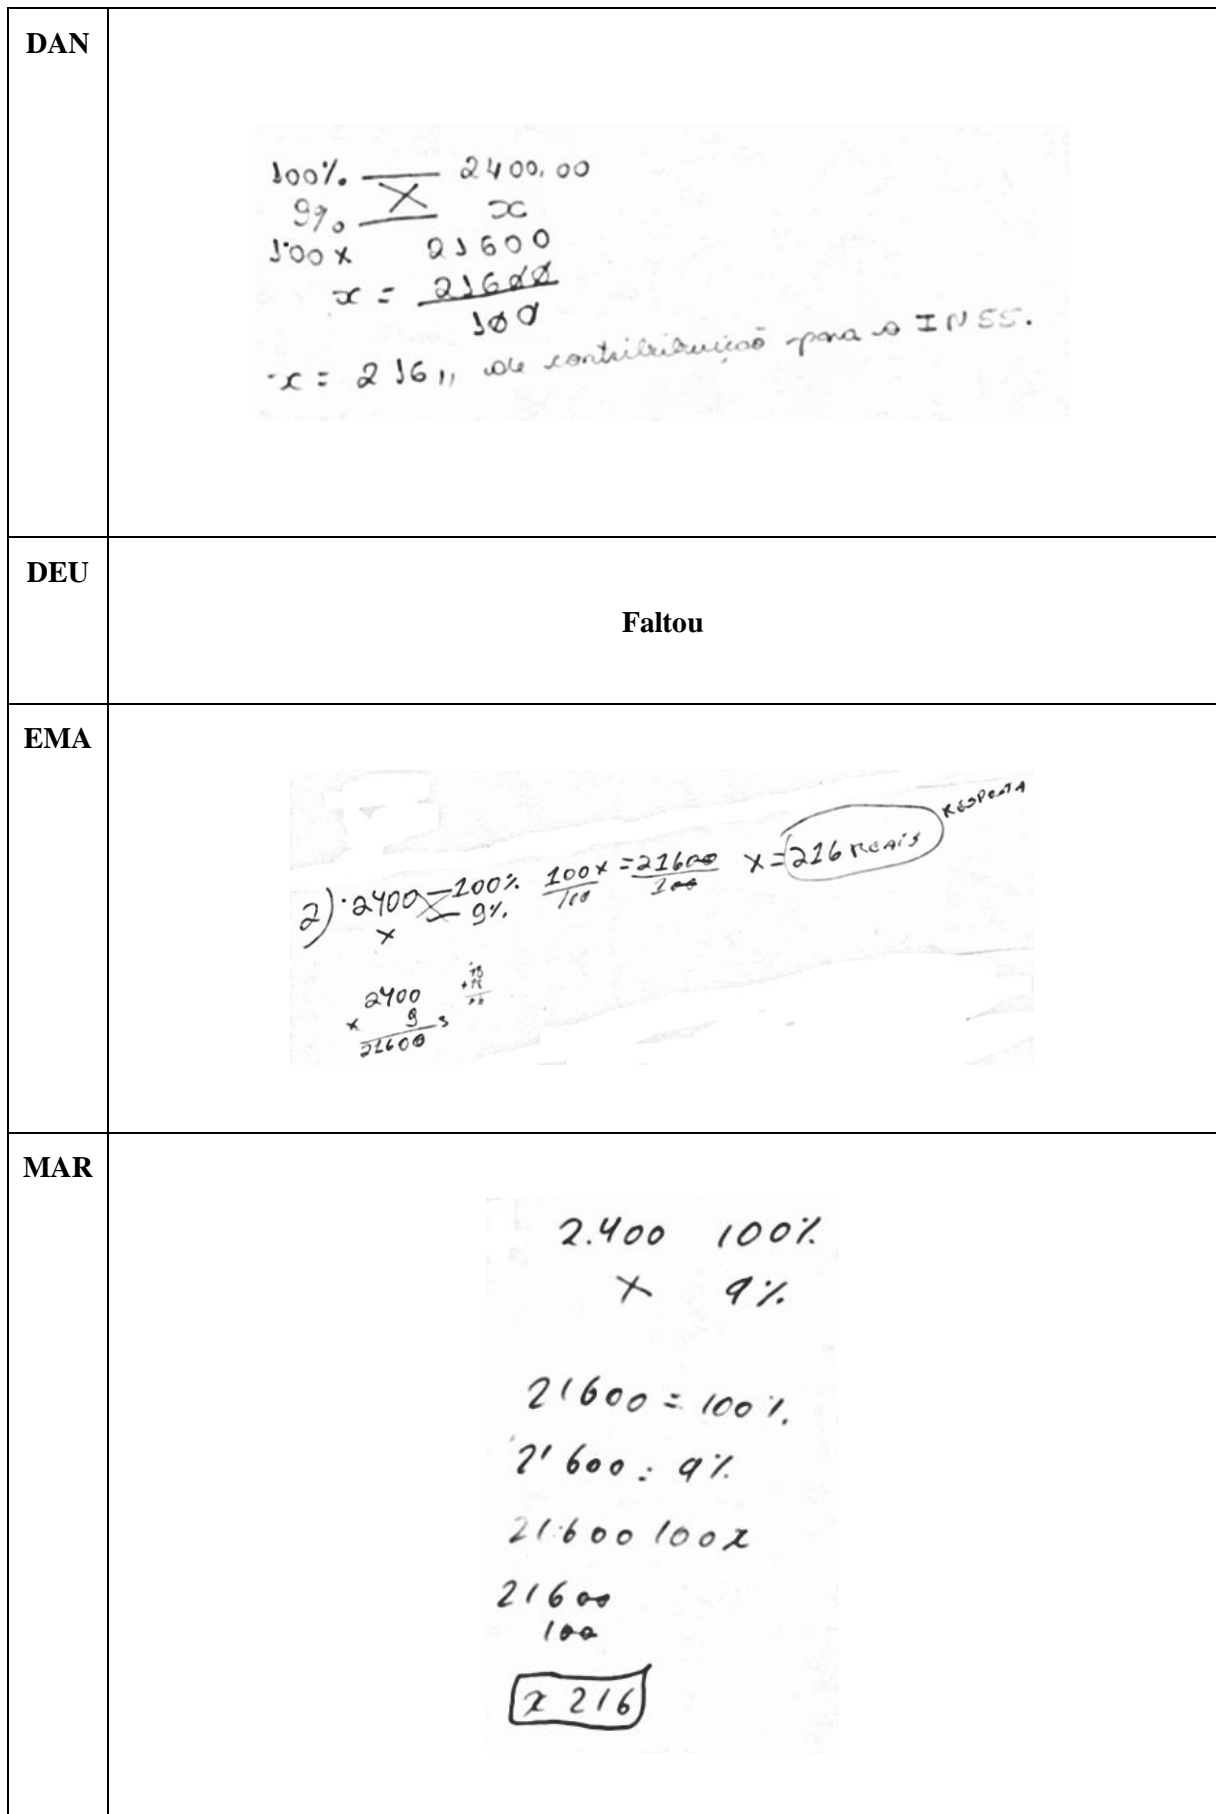 DAN
100% 2400,00
9% x
100x 21600
x = 21600
100
x = 216,, de contribibuicaõ para o INSS.
DEU
Faltou
EMA
RESPOSTA
2) 2400 — 100% 100x = 21600 x = 216 REAIS
x — 9% 100 100
2400
x 9
21600
MAR
2.400 100%
x 9%
21600 = 100%
21600 = 9%
21600 100x
21600
100
x 216